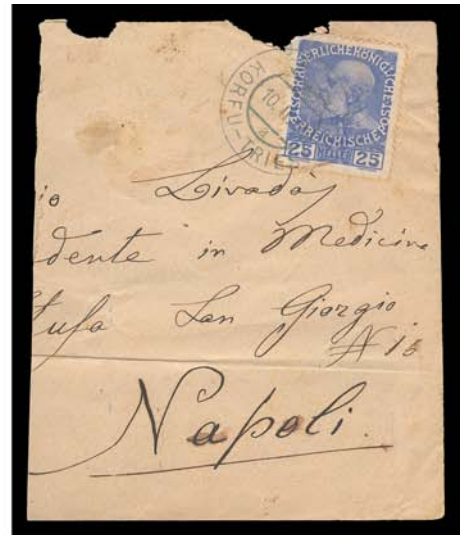 KORFU-TRIE
10.
a
KAISERLICHE KÖNIGLICHE
ÖSTERREICHISCHE POST
25 HELLER 25
io Livadàs
dente in Medicina
tufa San Giorgio
N 13
Napoli.